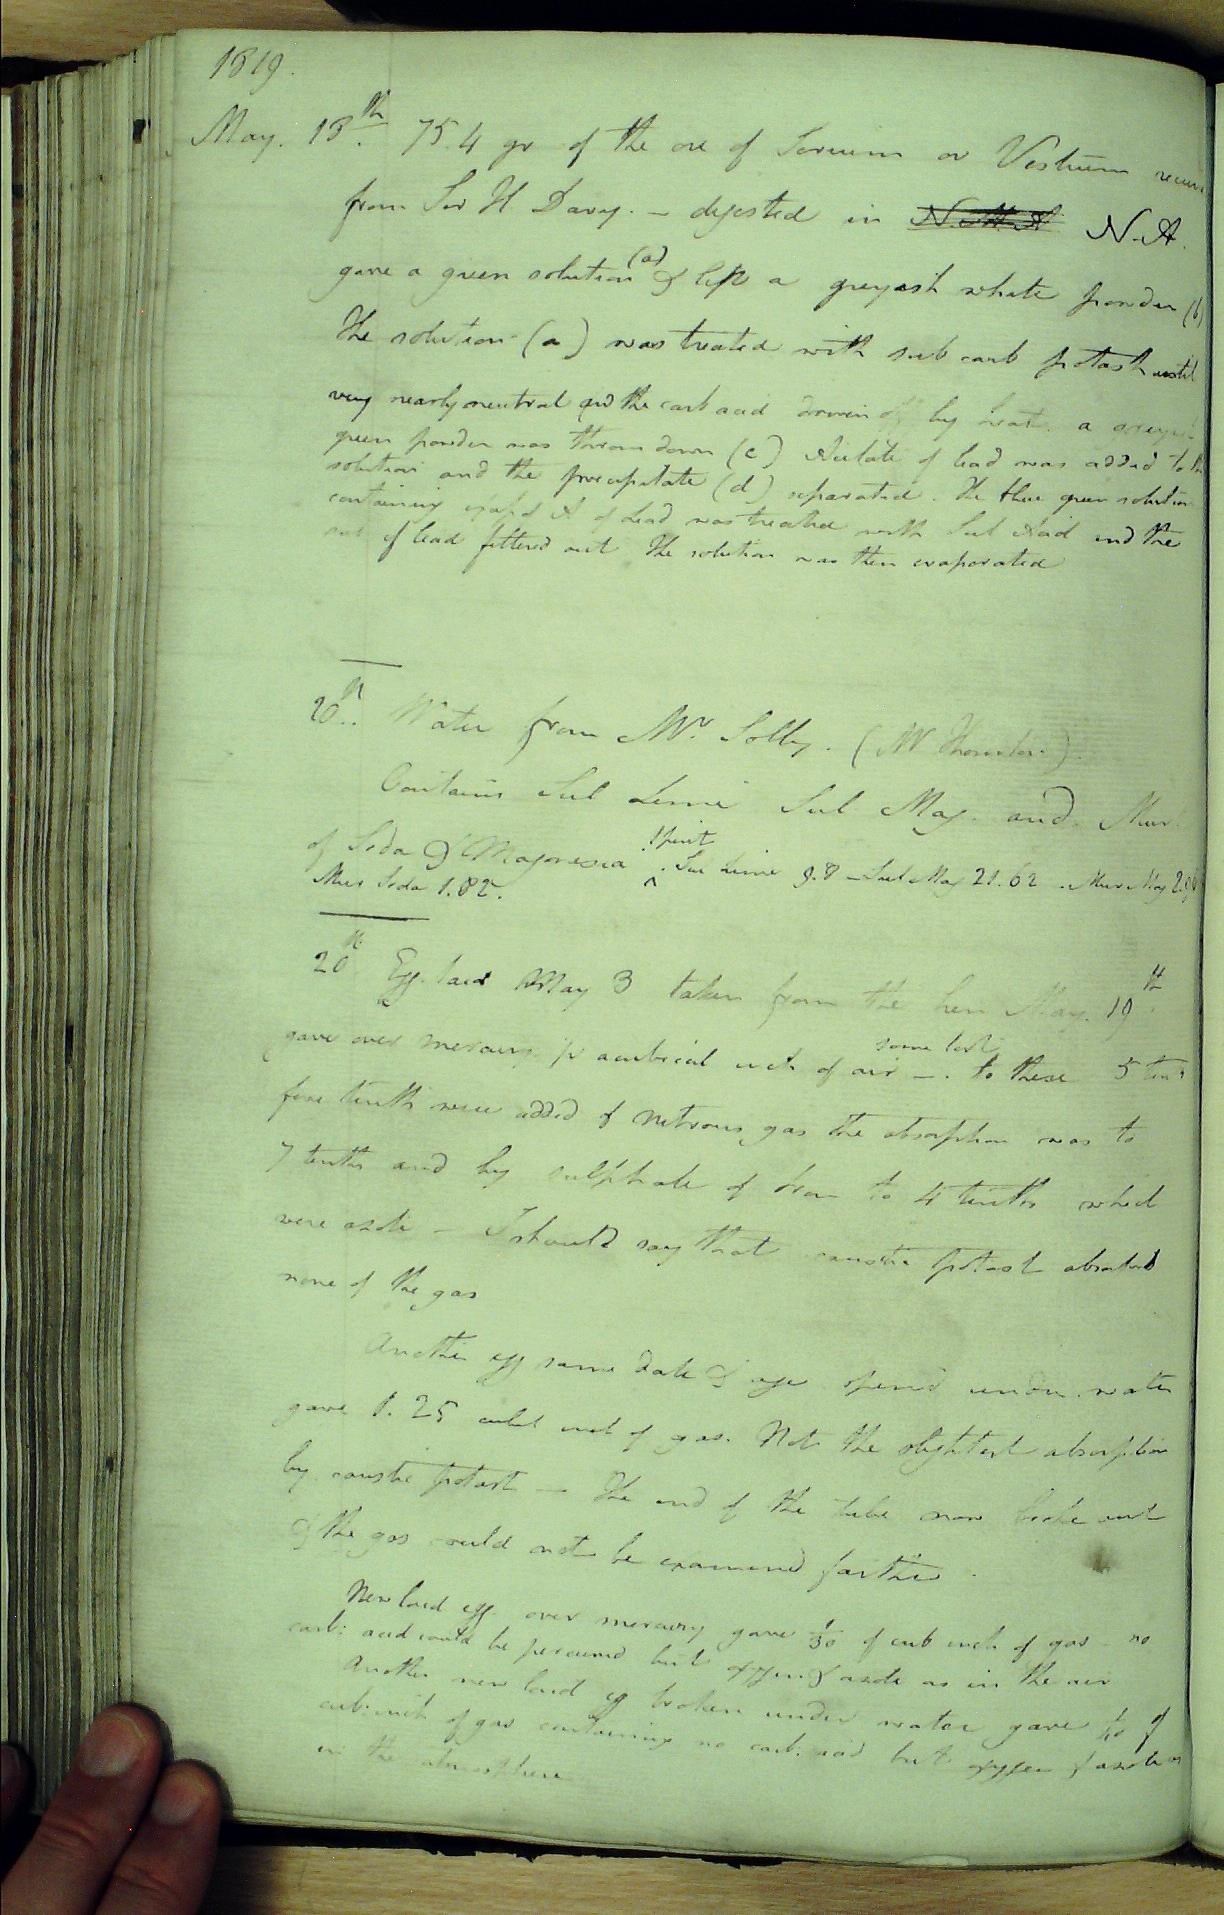 1819.
May. 18th. 75.4 gr of the ore of Sirium or Vestium
from Sir H Davy. – digested in N.M.A N.A.
gave a green solution (a) & left a greyish white powder (b)
The solution (a) was treated with sub carb potash until
very nearly neutral and the carb acid driven off by heat. a
green powder was thrown down (c) Acetate of lead was added to the
solution and the precipitate (d) separated. The blue green solution
containing A of Lead was treated with Sul Acid and the
sul of lead filtered out The solution was then evaporated
20th. Water from Mr. Solly. (Mr Thornton.)
Contains Sul Lime Sul Mag. and. Mur
of Soda & Magnesia . 1 pint Sul Lime 9.8 – Sul Mag 21.62 . Mur Mag
Mur Soda 1.82.
20th Egg laid May 3 taken from the hen May. 19th.
gave over mercury a cubical inch of air some lost –. to these 5
five tenths were added of nitrous gas the absorption was to
7 tenths and by sulphate of Iron to 4 tenths which
were azote – I should say that caustic potash absorbed
none of the gas
Another egg same date & age opened under water
gave 1.25 cubic inch of gas. Not the slightest absorption
by caustic potash – The end of the tube now broke out
& the gas could not be examined farther.
New laid egg over mercury gave 1/30 of cub inch of gas – no
carb: acid could be perceived but oxygen & azote as in the air
Another new laid egg broken under water gave of
cub: inch of gas containing no carb. acid but oxygen & azote as
in the atmosphere